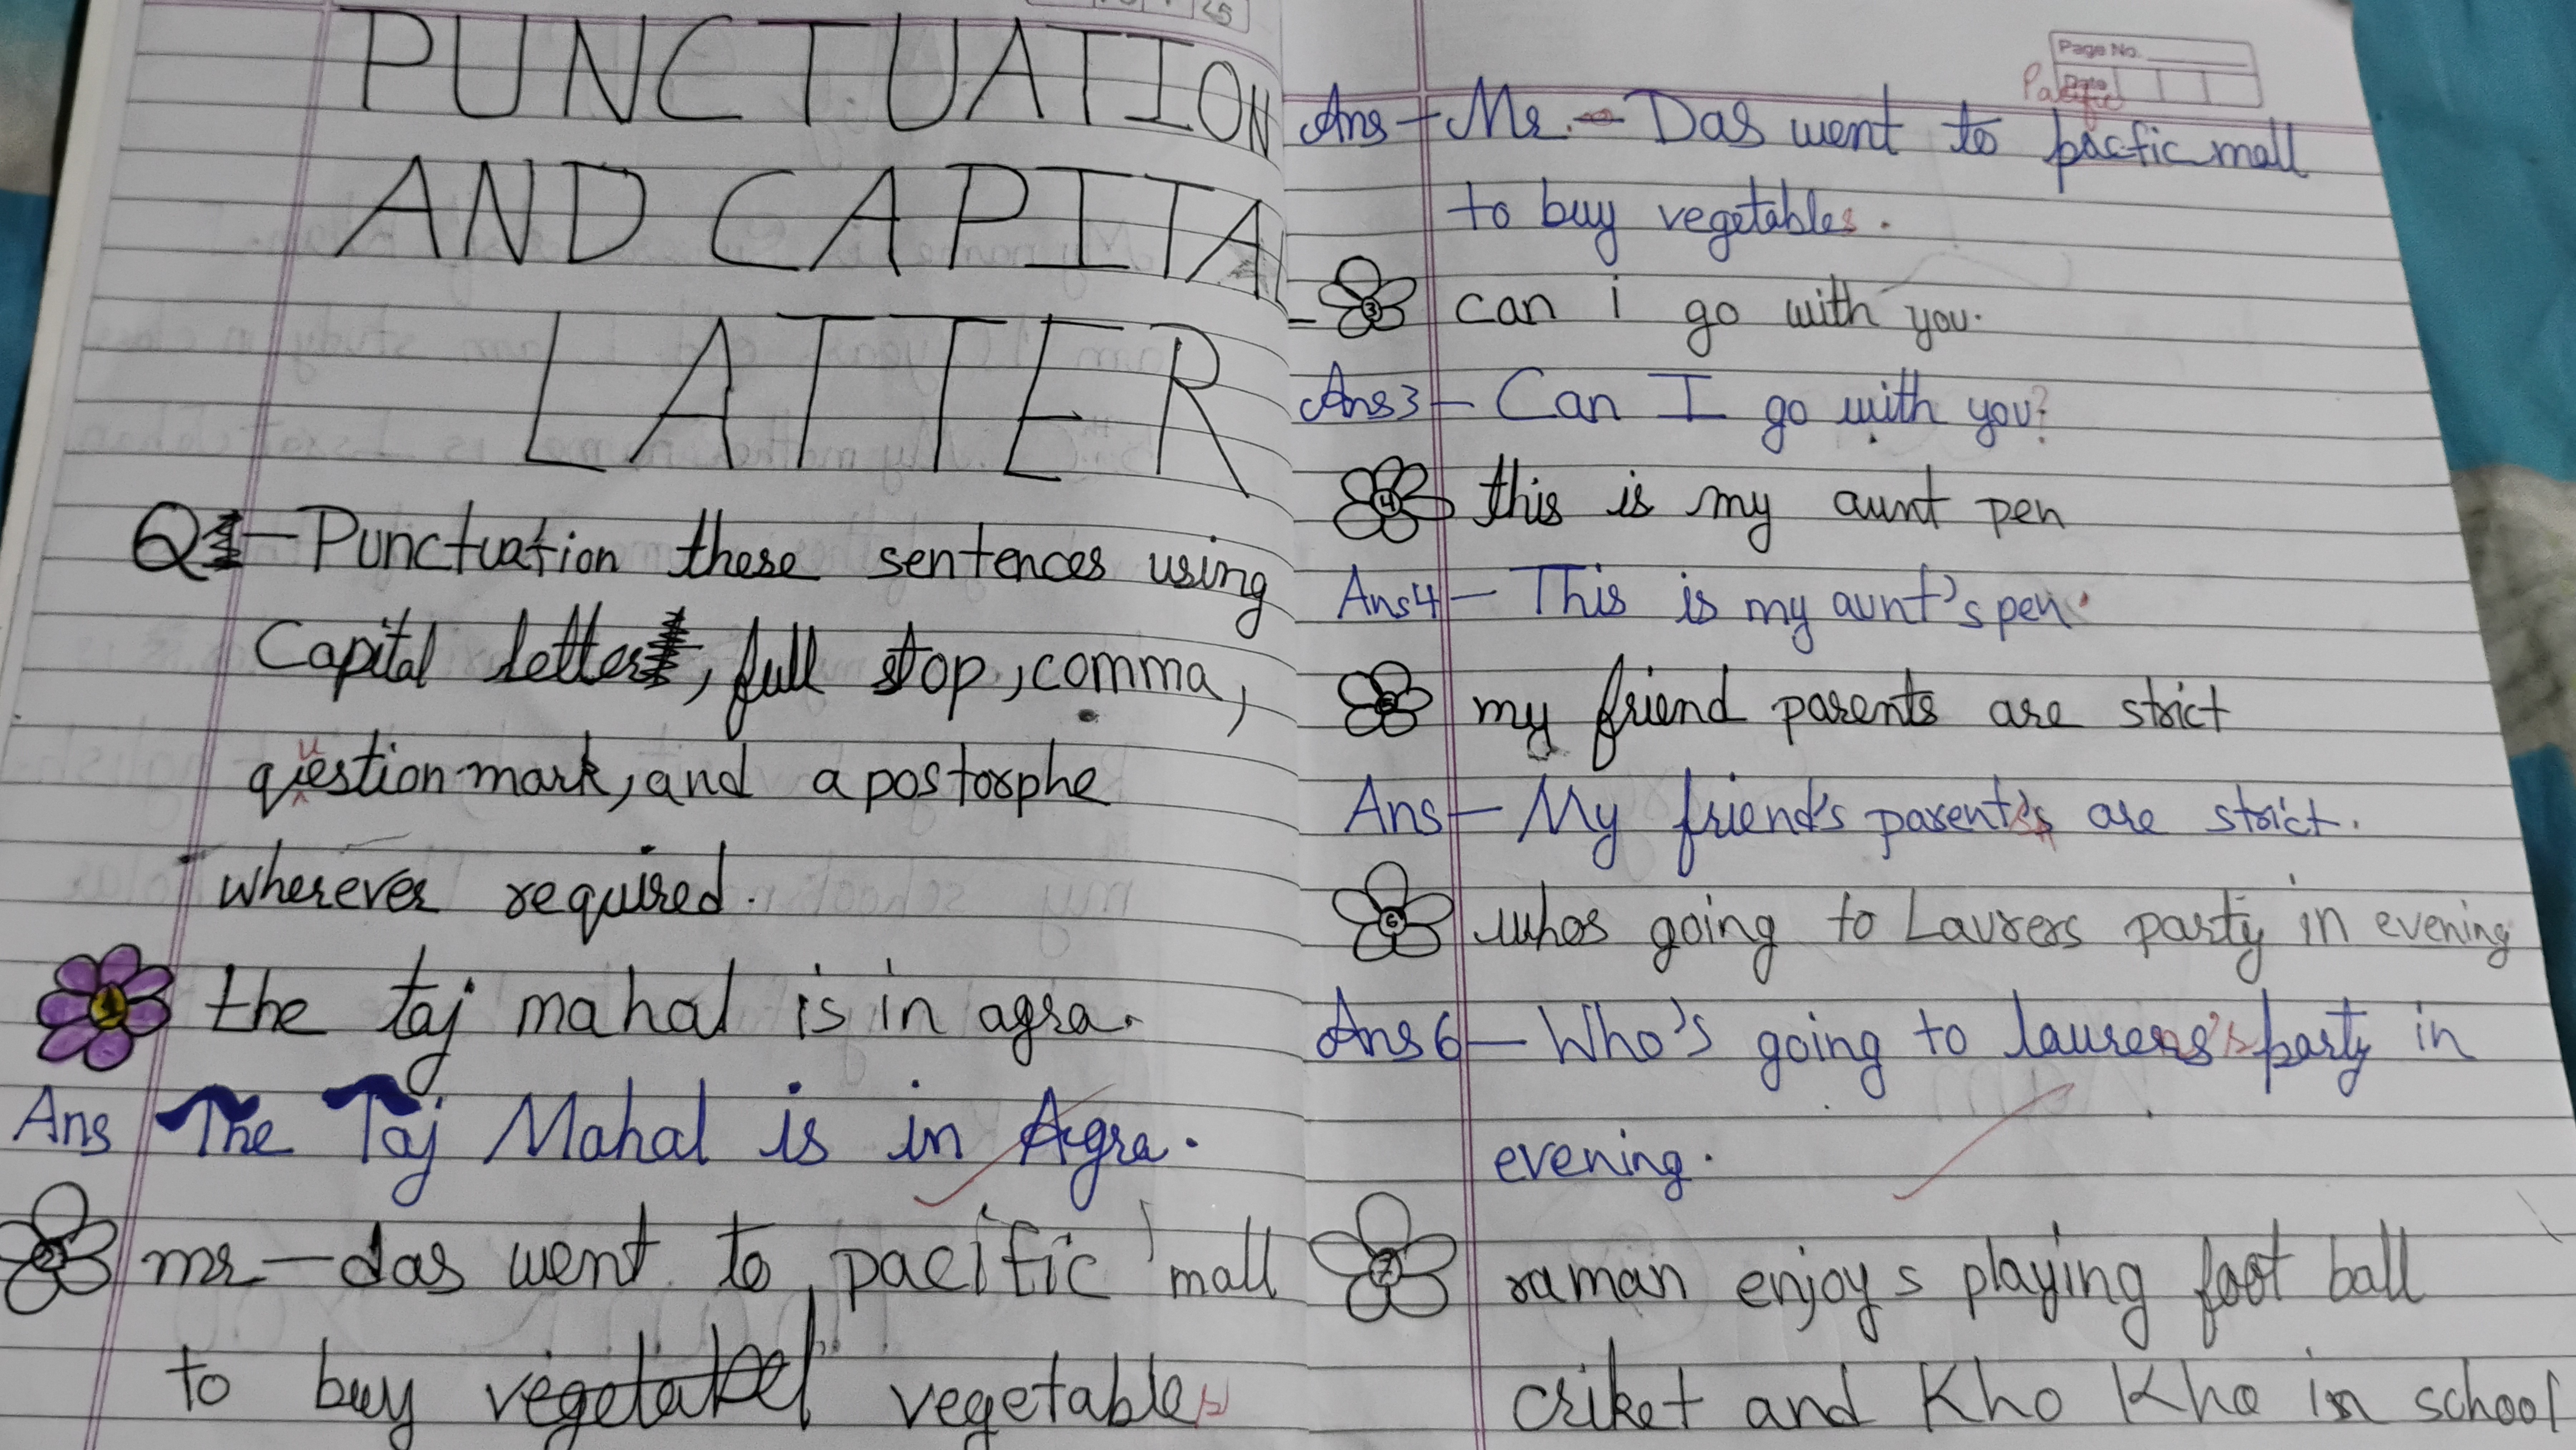 PUNCTUATION
AND CAPITAL
LATTER
Q1 - Punctuation these sentences using
Capital letters, full stop, comma,
question mark, and apostorphe
wherever required.
1 the taj mahal is in agra.
Ans The Taj Mahal is in Agra.
2 mr - das went to pacific mall
to buy vegetables
Page No.
Date
Pacific
Ans - Mr. - Das went to pacfic mall
to buy vegetables.
3 can i go with you.
Ans 3 - Can I go with you?
4 this is my aunt pen
Ans 4 - This is my aunt's pen.
5 my friend parents are strict
Ans - My friend's parents are strict.
6 whos going to Laurers party in evening
Ans 6 - Who's going to laurers's party in
evening.
7 raman enjoys playing foot ball
criket and Kho Kho in school